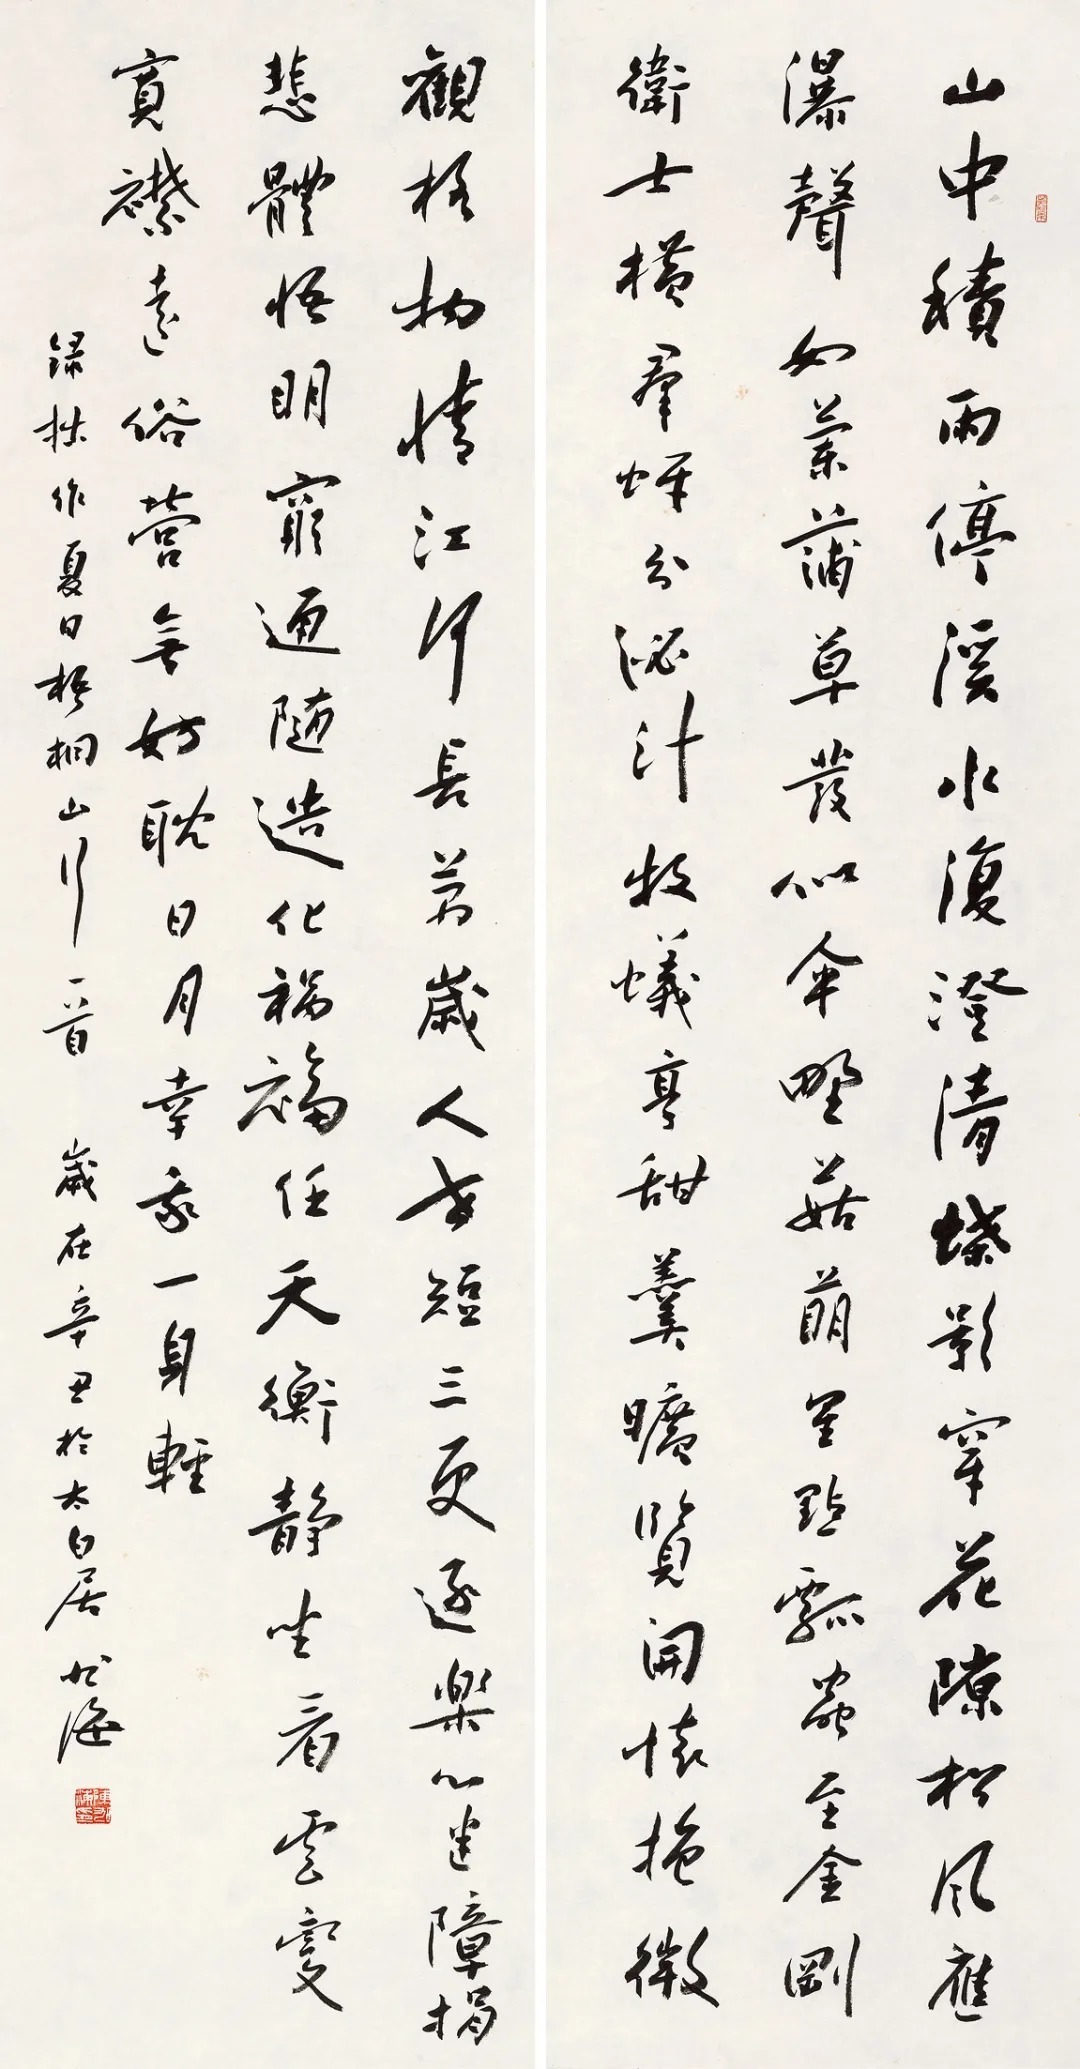 山中積雨停溪水復澄清蝶影穿花隙松風應
瀑聲如蘭蒲草發似傘野菇萌星點瓢蟲至金剛
衛士橫群蚜分泌汁牧蟻享甜羹曠覽開懷抱微
觀格物情江河長萬歲人世短三更逐樂心迷障捐
悲體悟明窮通隨造化禍福任天衡靜坐看雲變
寬襟遠俗營無妨耽日月幸我一身輕
録拙作夏日梧桐山行一首 歲在辛丑於太白居 海